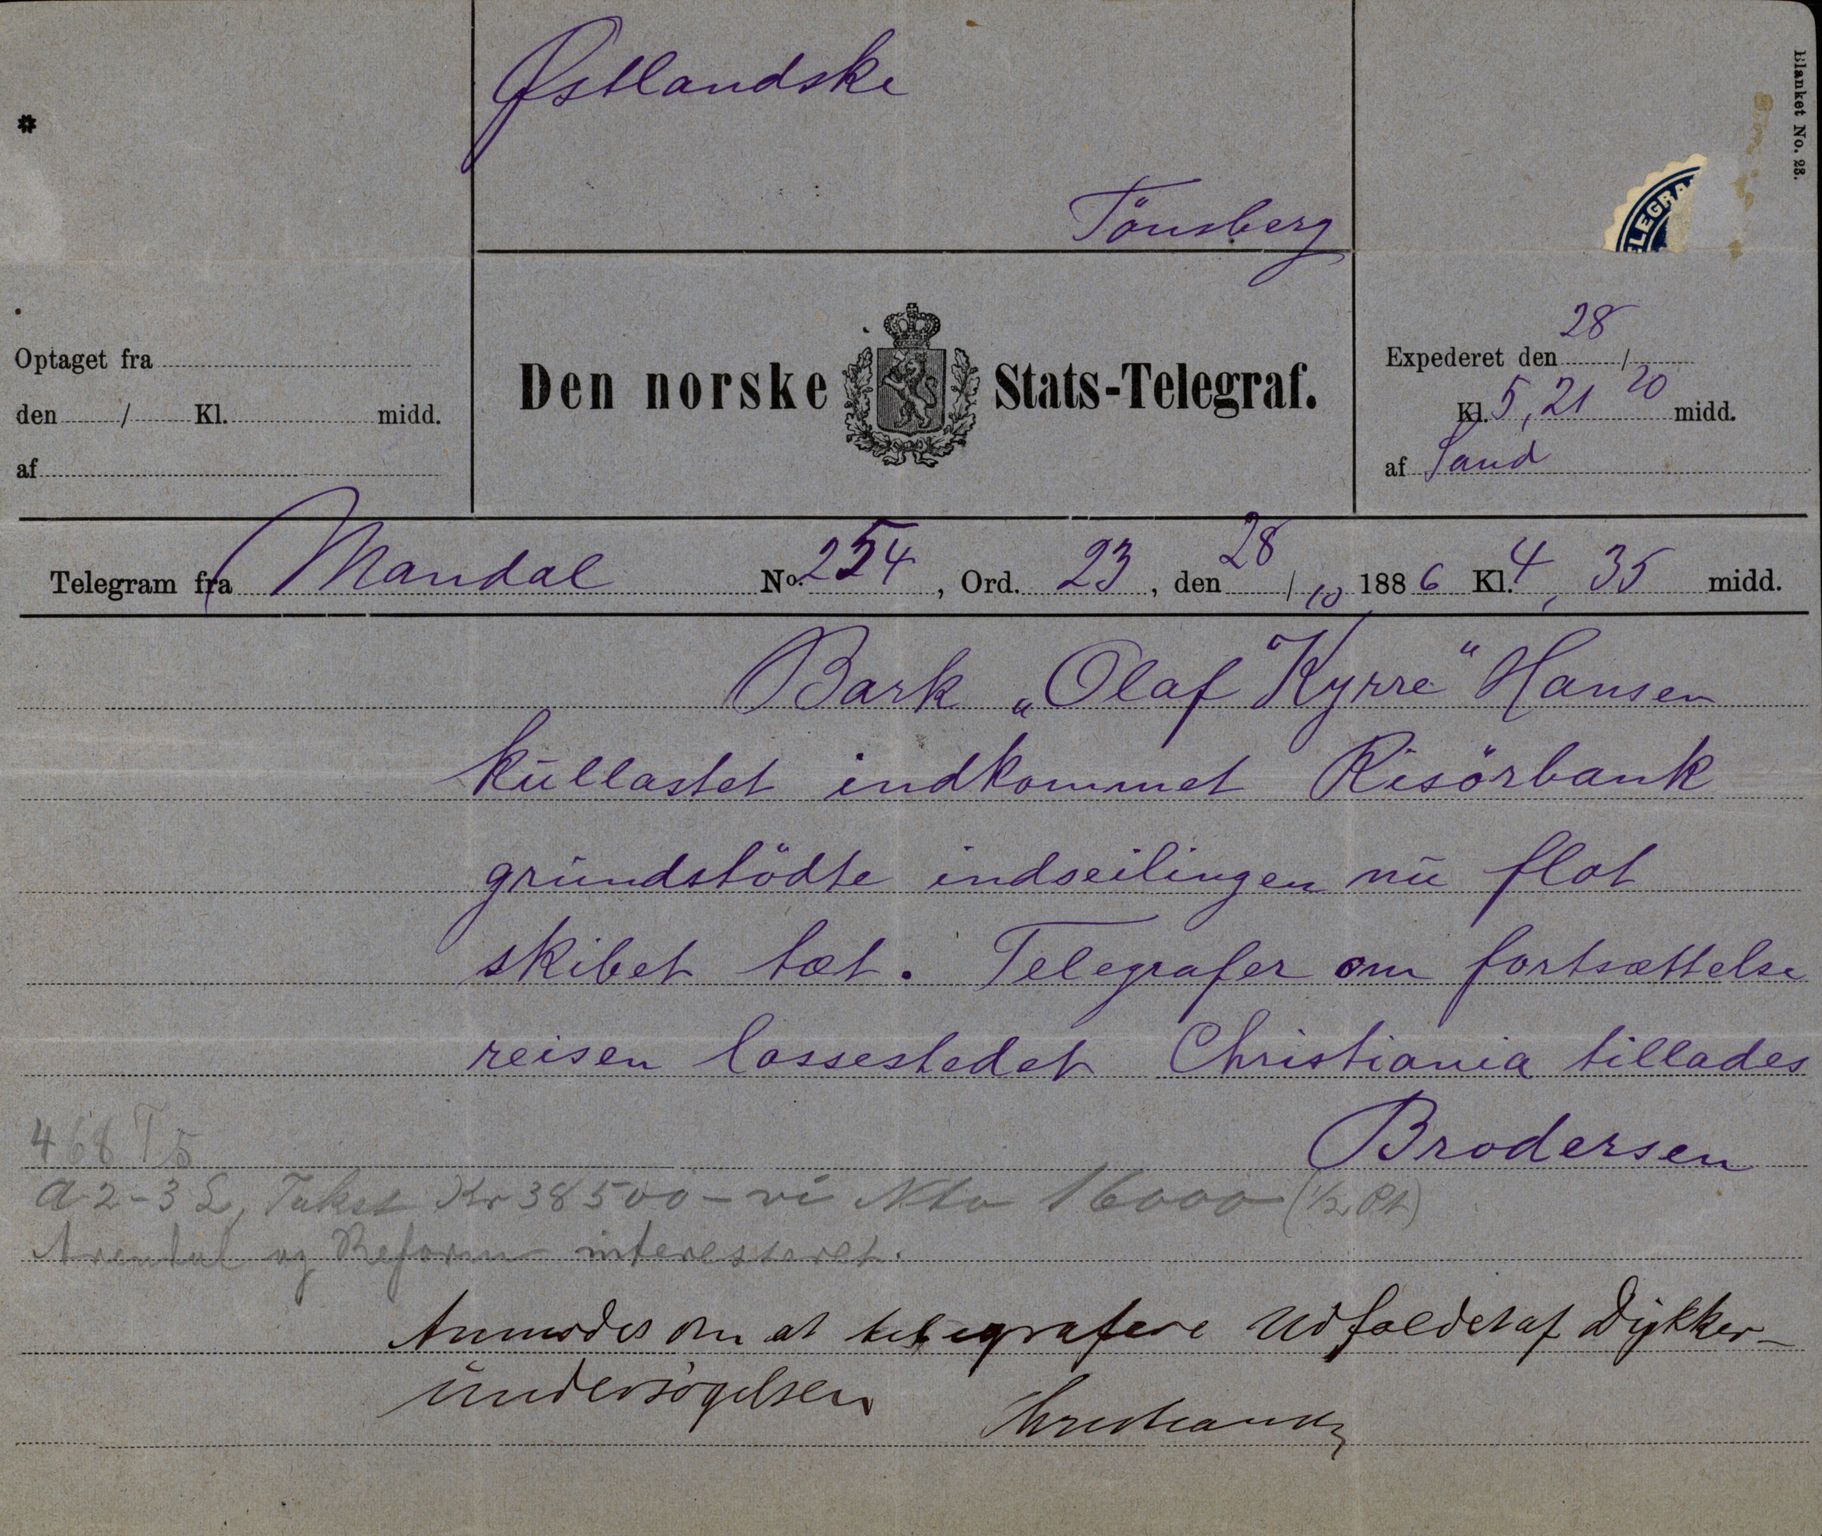 Østlandske
Tönsberg
Blanket No. 23.
TELEGRA
Optaget fra
den / Kl. midd.
af
Den norske Stats-Telegraf.
Expederet den 28 /
Kl. 5,21 20 midd.
af Sand
Telegram fra Mandal No. 254, Ord. 23, den 28/10 1886 Kl. 4,35 midd.
Bark „Olaf Kyrre" Hansen
kullastet indkommet Risörbank
grundstödte indseilingen nu flot
skibet tæt. Telegrafer om fortsættelse
reisen lossestedet Christiania tillades
Brodersen
468 T 5
A 2-3 L, Takst Kr 38500 - vi Nto 16000 (1/2 Pt)
Arendal og Reform interesseret.
Anmodes om at telegrafere Udfaldet af Dykker-
undersøgelsen